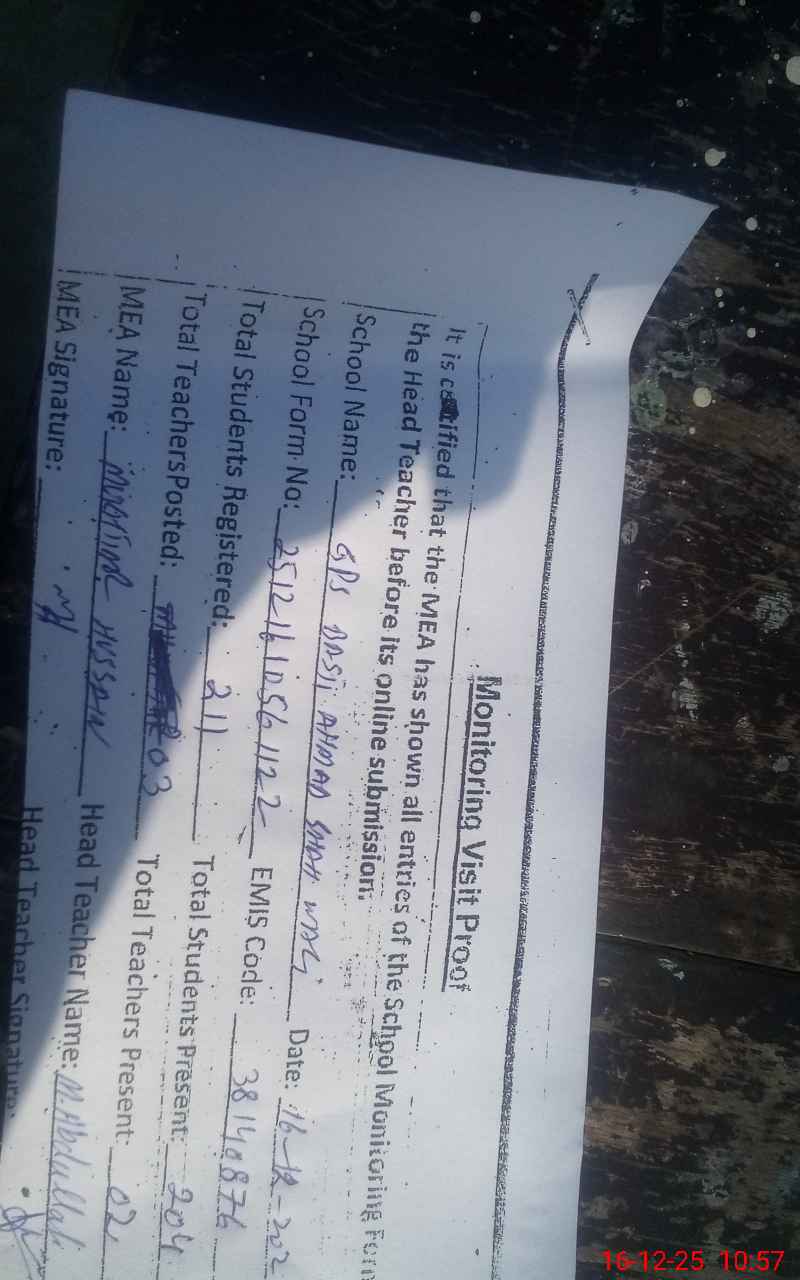 Monitoring Visit Proof
It is certified that the MEA has shown all entries of the School Monitoring Form
the Head Teacher before its online submission.
School Name: GPS BASTI AHMAD SHAH WALI Date: 16-12-202
School Form No: 25121610561122 EMIS Code: 38140876
Total Students Registered: 211 Total Students Present: 204
Total TeachersPosted: 03 Total Teachers Present: 02
MEA Name: HUSSAIN Head Teacher Name: M.Abdullah
MEA Signature: Head Teacher Signature:
16-12-25 10:57